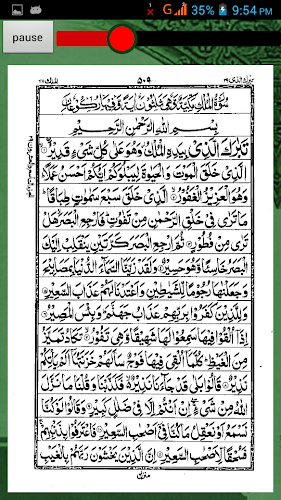 G 35% 9:54 PM
pause
تبرك الذی ٢٩ ٥٠٩ الملك ٦٧
سُوْرَةُ الْمُلْكِ مَكِّيَّةٌ وَّهِيَ ثَلٰثُوْنَ اٰيَةً وَّفِيْهَا رُكُوْعَانِ
بِسْمِ اللّٰهِ الرَّحْمٰنِ الرَّحِيْمِ
تَبٰرَكَ الَّذِيْ بِيَدِهِ الْمُلْكُ وَهُوَ عَلٰى كُلِّ شَيْءٍ قَدِيْرُ
الَّذِيْ خَلَقَ الْمَوْتَ وَالْحَيٰوةَ لِيَبْلُوَكُمْ اَيُّكُمْ اَحْسَنُ عَمَلًا
وَهُوَ الْعَزِيْزُ الْغَفُوْرُ الَّذِيْ خَلَقَ سَبْعَ سَمٰوٰتٍ طِبَاقًا
مَا تَرٰى فِيْ خَلْقِ الرَّحْمٰنِ مِنْ تَفٰوُتٍ فَارْجِعِ الْبَصَرَ هَلْ
تَرٰى مِنْ فُطُوْرٍ ثُمَّ ارْجِعِ الْبَصَرَ كَرَّتَيْنِ يَنْقَلِبْ اِلَيْكَ
الْبَصَرُ خَاسِئًا وَّهُوَ حَسِيْرٌ وَلَقَدْ زَيَّنَّا السَّمَآءَ الدُّنْيَا بِمَصَابِيْحَ
وَجَعَلْنٰهَا رُجُوْمًا لِّلشَّيٰطِيْنِ وَاَعْتَدْنَا لَهُمْ عَذَابَ السَّعِيْرِ
وَلِلَّذِيْنَ كَفَرُوْا بِرَبِّهِمْ عَذَابُ جَهَنَّمَ وَبِئْسَ الْمَصِيْرُ
اِذَآ اُلْقُوْا فِيْهَا سَمِعُوْا لَهَا شَهِيْقًا وَّهِيَ تَفُوْرُ تَكَادُ تَمَيَّزُ
مِنَ الْغَيْظِ كُلَّمَآ اُلْقِيَ فِيْهَا فَوْجٌ سَاَلَهُمْ خَزَنَتُهَآ اَلَمْ يَاْتِكُمْ
نَذِيْرٌ قَالُوْا بَلٰى قَدْ جَآءَنَا نَذِيْرٌ فَكَذَّبْنَا وَقُلْنَا مَا نَزَّلَ
اللّٰهُ مِنْ شَيْءٍ اِنْ اَنْتُمْ اِلَّا فِيْ ضَلٰلٍ كَبِيْرٍ وَقَالُوْا لَوْ كُنَّا
نَسْمَعُ اَوْ نَعْقِلُ مَا كُنَّا فِيْ اَصْحٰبِ السَّعِيْرِ فَاعْتَرَفُوْا بِذَنْبِهِمْ
فَسُحْقًا لِّاَصْحٰبِ السَّعِيْرِ اِنَّ الَّذِيْنَ يَخْشَوْنَ رَبَّهُمْ بِالْغَيْبِ